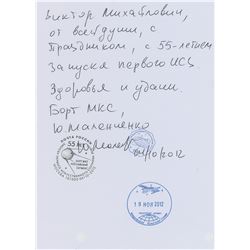 Виктор Михайлович,
от всей души, с
Праздником, с 55-летием
Запуска первого ИСЗ
Здоровья и удачи
Борт МКС,
Ю. Маленченко
04/10/2012
ПОЧТА РОССИИ
55 лет
19 НОЯ 2012